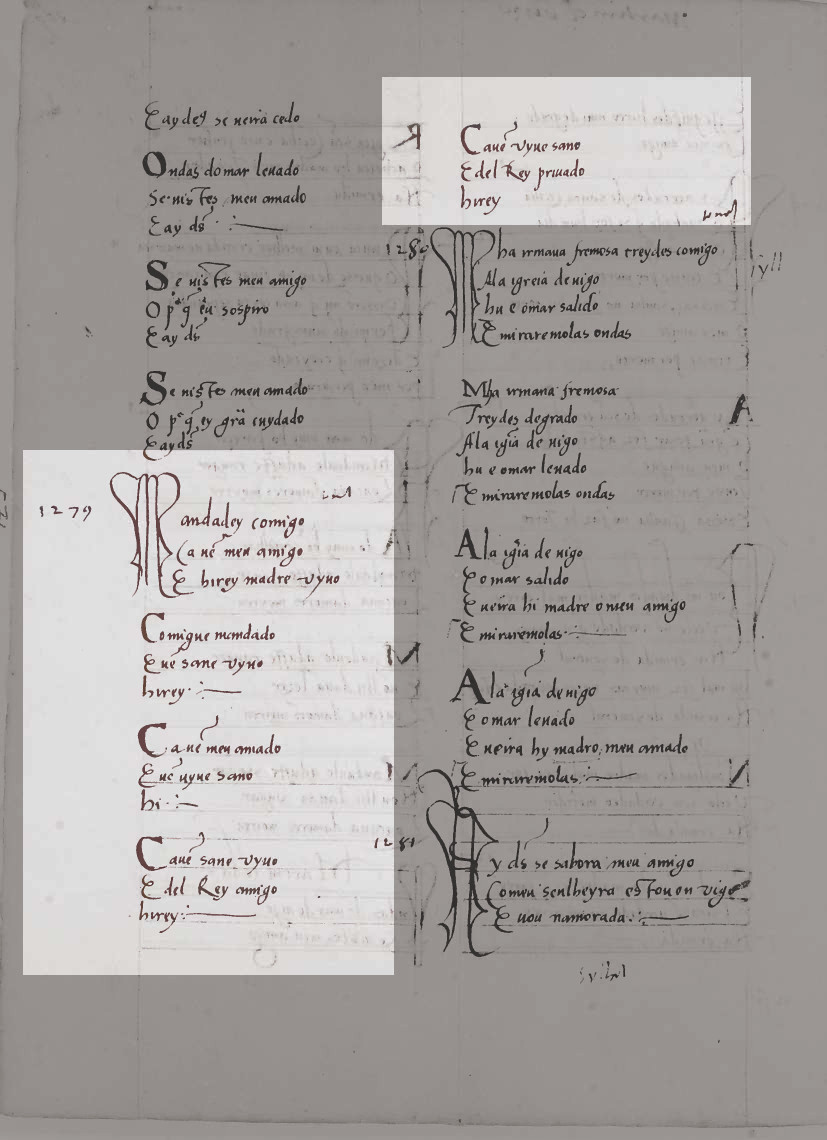 Eay deg se ueirà cedo
Ondas do mar leuado
Se uistes meu amado
Eay ds
Se uistes meu amigo
O p q eu sospiro
Eay ds
Se uistes meu amado
O p q ey grã cuydado
Eay ds
1279
Mandadey comigo
Ca uē meu amigo
E hirey madre uyuo
Comigue mandado
Que sane uyuo
hirey
Ca uē meu amado
Que uyue sano
hi
Caue sane uyuo
E del Rey amigo
hirey
Caue uyue sano
E del Rey priuado
hirey
1280
Mha irmana fremosa treydes comigo
Ala igreia de uigo
hu e o mar salido
E miraremolas ondas
Mha irmana fremosa
Treydes de grado
Ala igia de uigo
hu e o mar leuado
E miraremolas ondas
Ala igia de uigo
E o mar salido
E ueira hi madre o meu amigo
E miraremolas
Ala igia de uigo
E o mar leuado
E ueira hy madro, meu amado
E miraremolas
1281
Ay ds se sabora meu amigo
Comeu senlheyra estou en uigo
E uou namorada